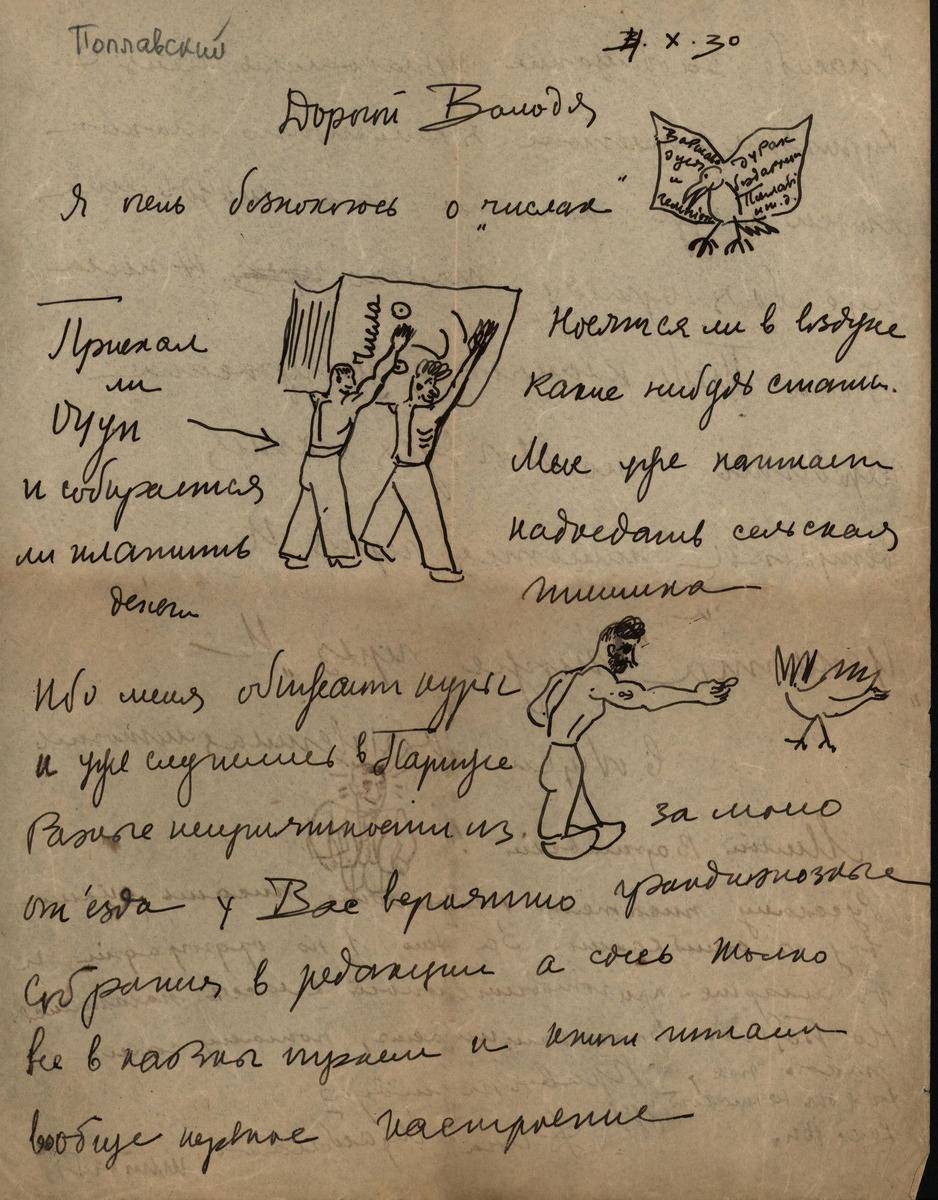 Поплавский
X. 30
Дорогой Володя
Я очень безпокоюсь о "числах"
и
дурак
и т. д.
Числа
Приехал
ли
Оцуп
и собирается
ли платить
деньги
Носятся ли в воздухе
какие нибудь статьи.
Мне уже начинает
надоедать сельская
тишина
Ибо меня обижают куры
и уже случились в Париже
Разные неприятности из
за моего
отъезда у Вас вероятно грандиознные
Собрания в редакции а здесь только
все в играем и книги читаем
вообще нервное настроение